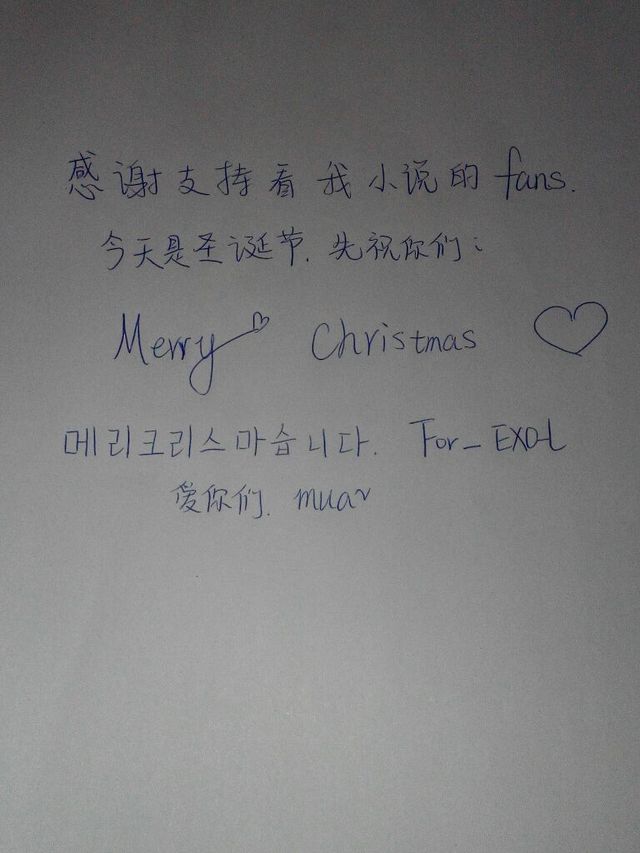 感谢支持看我小说的 fans.
今天是圣诞节. 先祝你们:
Merry Christmas
메리크리스마습니다. For_EXO-L
爱你们. mua~